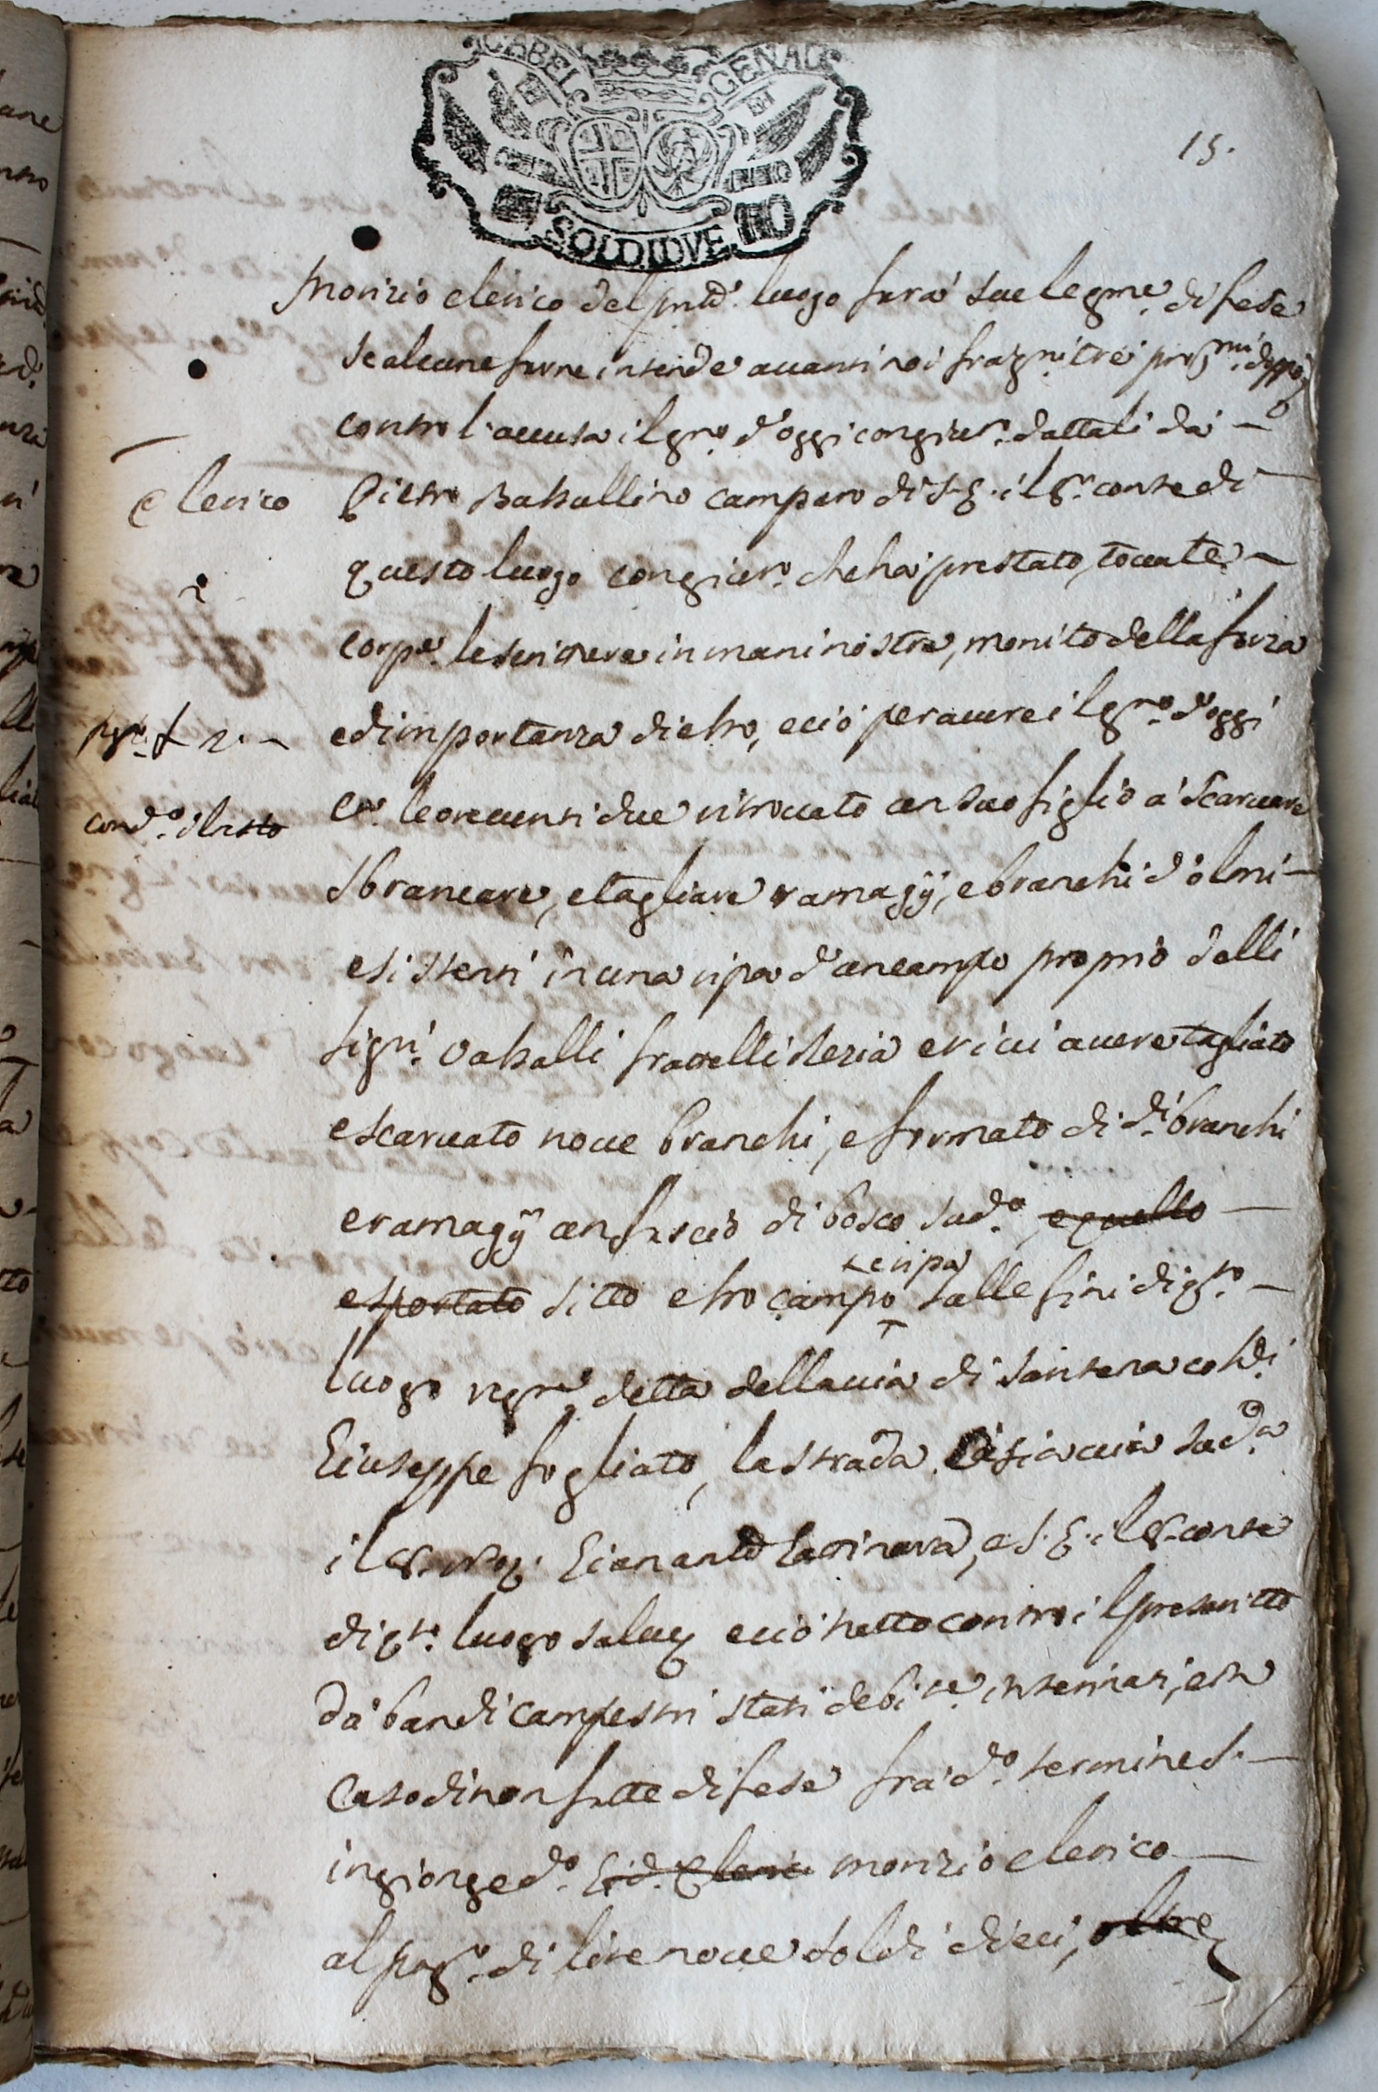 GABEL GENAL
SOLDI DVE
15.
Morizio Clerico del pnte luogo farà sue legme difese
se alcune farne intende avanti noi fra gni tre pros.mi doppo
contro l'accusa il gno d'oggi con giur.to dattali da
Clerico
Pietro Baballino camparo di S. E. il Sr conte di
questo luogo con giur.to che ha prestato, toccate
corp.te le scritture in mani nostre, monito della forza
ed importanza di esso, e ciò per avere il gno d'oggi
pgto £ 2. -
cond.o il resto
le ore venti due ritrovato con suo figlio a scarvare
sbrancare, e tagliare ramagÿ, e branchi d'olmi
esistenti in una ripa d'un campo proprio delli
Sigri Vaballi fratelli e rici avere tagliato
e scarvato nove branchi, e formato di di branchi
e ramagÿ un fascio di bosco sud.o, e quello
esportato sitto esso campo e ripa sulle fini di q.to
luogo regne detta della via di Santena cohti
Giuseppe fogliato, la strada ossia via sud.a
il Sr Gianant.o e S. E. il Sr conte
di q.to luogo salvq e ciò netto contro il prescritto
da bandi campestri stati debi.te interinati, e in
caso di non fatte difese fra d.o termine S.
ingionge d.o Gio. Cleric morizio clerico
al pag.to di lire nove soldi dieci, oltre